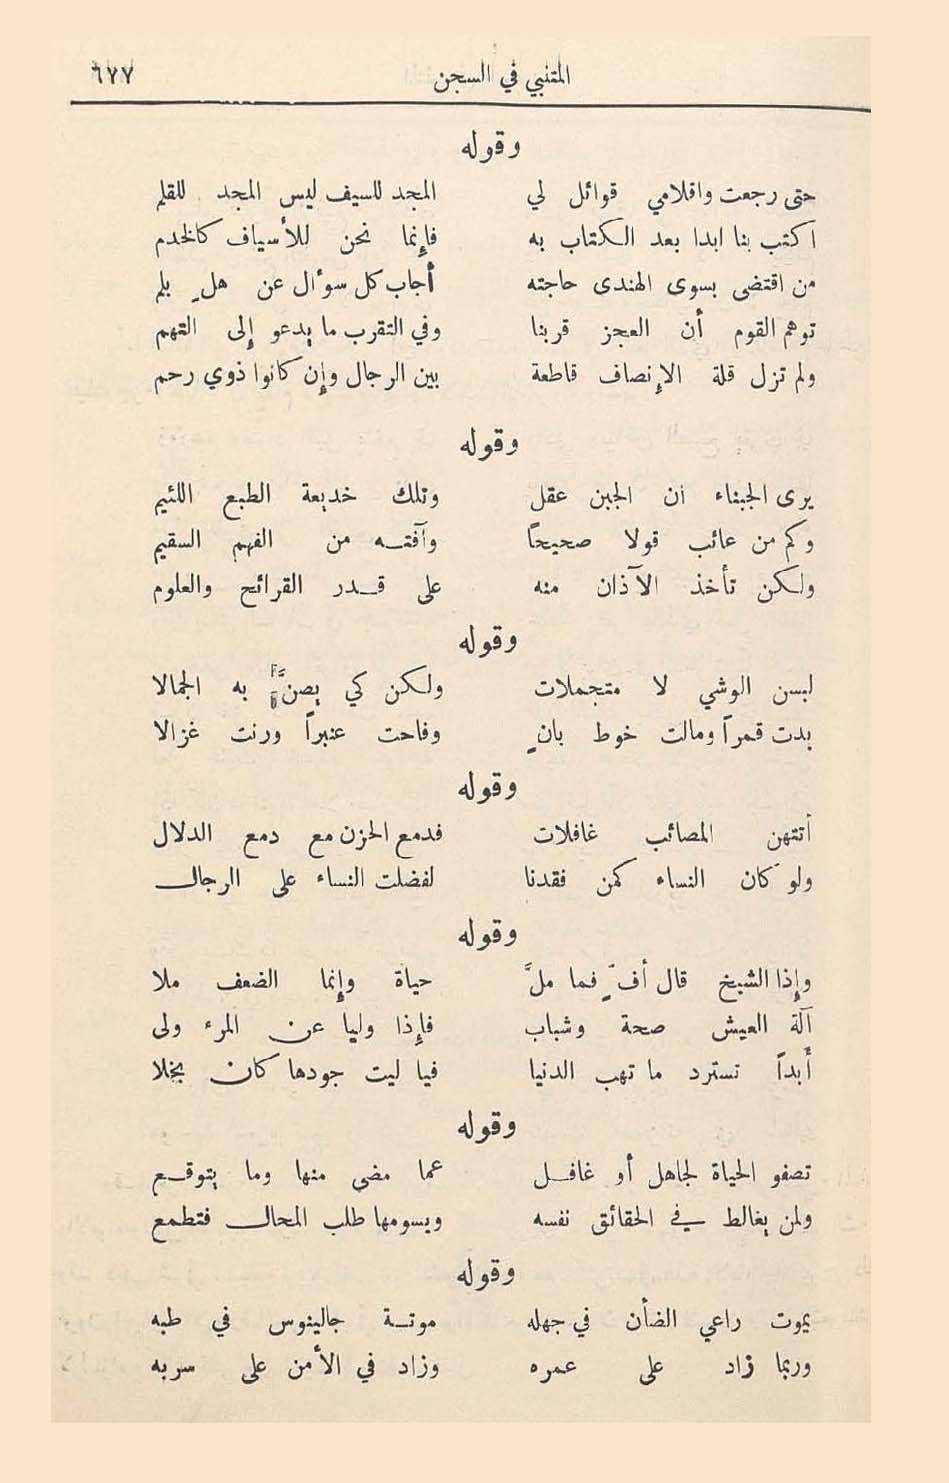 المتنبي في السجن ٦٧٧
وقوله
حتى رجعت واقلامي قوائل لي المجد للسيف ليس المجد للقلم
اكتب بنا ابدا بعد الكتاب به فإنما نحن للأسياف كالخدم
من اقتضى بسوى الهندى حاجته أجاب كل سوأل عن هلٍ بلم
توهم القوم أن العجز قربنا وفي التقرب ما يدعو إلى التهم
ولم تزل قلة الإنصاف قاطعة بين الرجال وإن كانوا ذوي رحم
وقوله
يرى الجبناء ان الجبن عقل وتلك خديعة الطبع اللئيم
وكم من عائب قولا صحيحاً وآفته من الفهم السقيم
ولكن تأخذ الآذان منه على قدر القرائح والعلوم
وقوله
لبسن الوشي لا متجملات ولكن كي يصنَّ به الجمالا
بدت قمراً ومالت خوط بانٍ وفاحت عنبراً ورنت غزالا
وقوله
أتتهن المصائب غافلات فدمع الحزن مع دمع الدلال
ولو كان النساء كمن فقدنا لفضلت النساء على الرجال
وقوله
وإذا الشيخ قال أفٍّ فما ملَّ حياة وإنما الضعف ملا
آلة العيش صحة وشباب فإذا وليا عن المرء ولى
أبداً تسترد ما تهب الدنيا فيا ليت جودها كان بخلا
وقوله
تصفو الحياة لجاهل أو غافل عما مضى منها وما يتوقع
ولمن يغالط في الحقائق نفسه ويسومها طلب المحال فتطمع
وقوله
يموت راعي الضأن في جهله موتة جالينوس في طبه
وربما زاد على عمره وزاد في الأمن على سربه